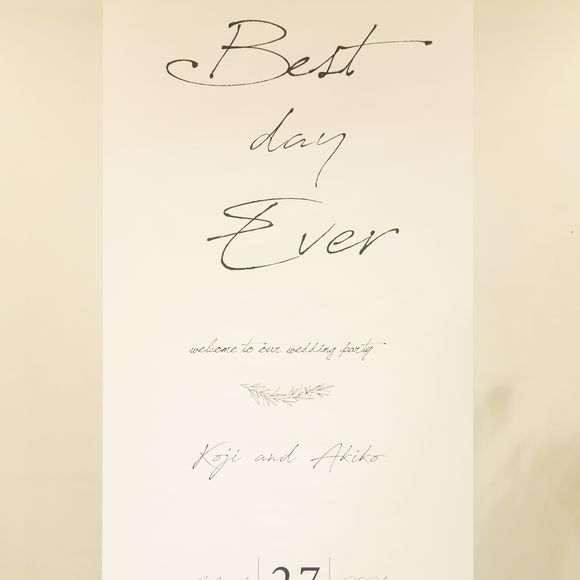 Best
day
Ever
welcome to our wedding party
Koji and Akiko
27